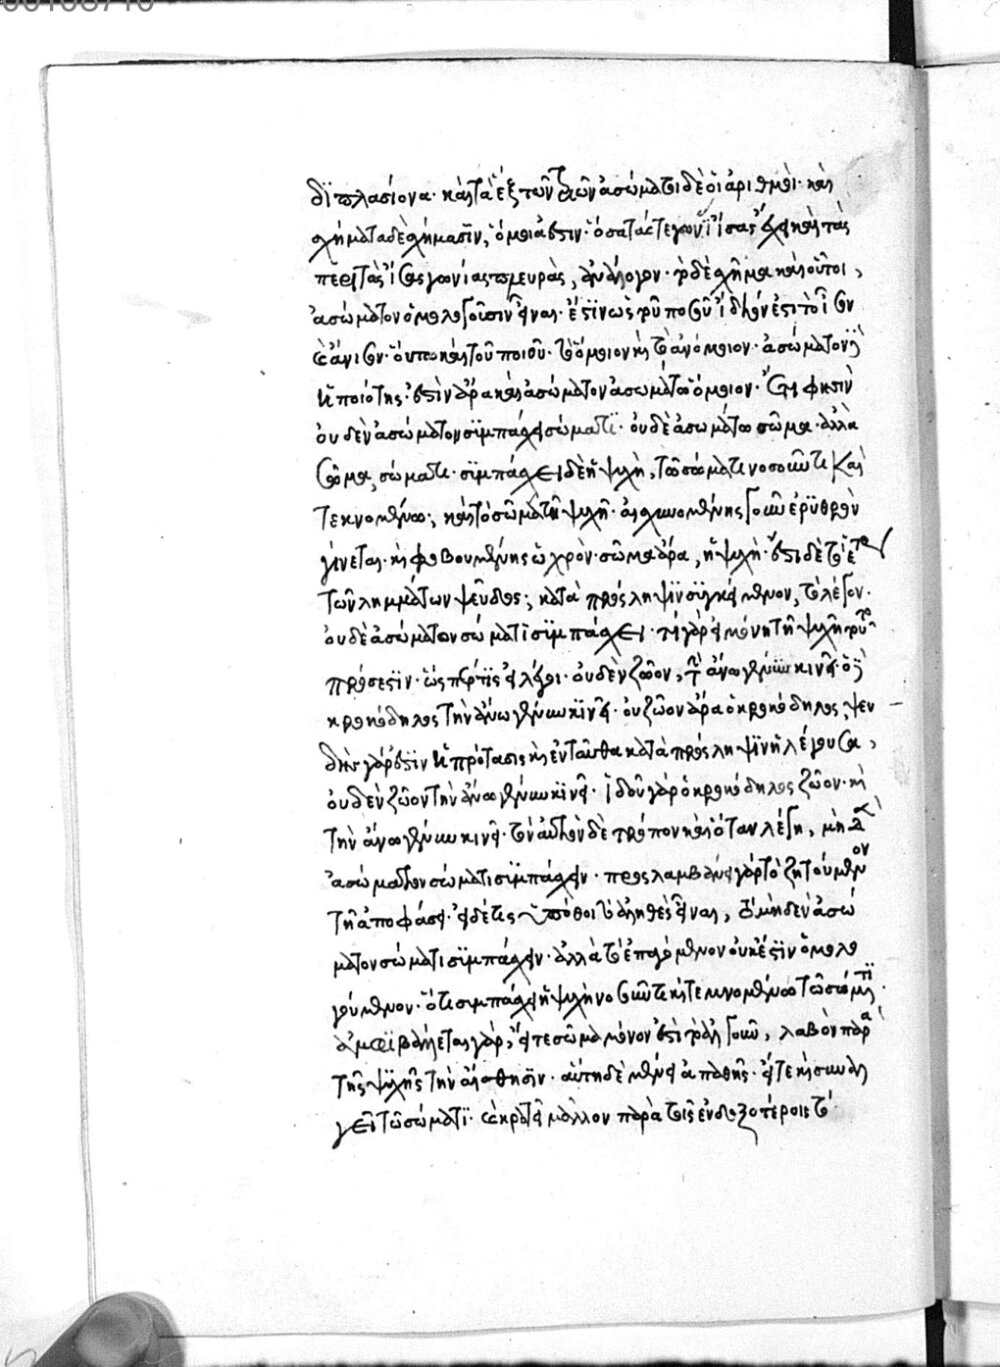 διπλασίονα· καὶ τὰ ἐξ τῶν ζ ὧν ἀσώματοι δὲ οἱ ἀριθμοὶ· καὶ
σχήματα δὲ σχήμασιν, ὅμοιά ἐστιν· ὅσα τάς τε γωνίας ἴσας ἔχει καὶ τὰς
περὶ τὰς ἴσας γωνίας πλευρὰς, ἀνάλογον· τὸ δὲ σχῆμα καὶ οὗτοι,
ἀσώματον ὁμολογοῦσιν εἶναι· ἔστιν ὡς τοῦ ποσοῦ ἴδιόν ἐστι τὸ ἴσον
καὶ ἄνισον· οὕτω καὶ τοῦ ποιοῦ· τὸ ὅμοιον καὶ τὸ ἀνόμοιον· ἀσώματον δὲ
ἡ ποιότης· ἔστιν ἄρα καὶ ἀσώματον ἀσωμάτω ὅμοιον· ἔτι φησὶν
οὐδὲν ἀσώματον συμπάσχει σώματι· οὐδὲ ἀσωμάτω σῶμα· ἀλλὰ
σῶμα, σώματι· συμπάσχει δὲ ἡ ψυχὴ, τῶ σώματι νοσοῦντι καὶ
τεμνομένω· καὶ τὸ σῶμα τῆ ψυχῆ· αἰσχυνομένης γοῦν ἐρυθρὸν
γίνεται· καὶ φοβουμένης ὠχρὸν· σῶμα ἄρα, ἡ ψυχὴ· ἔστι δὲ τὸ ἕτερον
τῶν λημμάτων ψεῦδος· κατὰ πρόσληψιν συγκείμενον, τὸ λέγον·
οὐδὲ ἀσώματον σώματι συμπάσχει· τί γὰρ εἰ μόνη τῆ ψυχῆ τοῦτο
πρόσεστιν· ὥσπερ τις εἰ λέγοι· οὐδὲν ζῶον, τὴν ἄνω γένυν κινεῖ· ὁ δὲ
κροκόδηλος τὴν ἄνω γένυν κινεῖ· οὐ ζῶον ἄρα ὁ κροκόδηλος, ψευ
δὴς γάρ ἐστιν ἡ πρότασις καὶ ἐνταῦθα κατὰ πρόσληψιν ἡ λέγουσα,
οὐδὲν ζῶον τὴν ἄνω γένυν κινεῖ· ἰδοὺ γὰρ ὁ κροκόδηλος ζῶον· καὶ
τὴν ἄνω γένυν κινεῖ· τὸν αὐτὸν δὲ τρόπον καὶ ὅταν λέγη, μηδὲν
ἀσώματον σώματι συμπάσχειν· προσλαμβάνει γὰρ τὸ ζητούμενον
τῆ ἀποφάσει· εἰ δέ τις ὑπόθοιτο ἀληθὲς εἶναι, τὸ μηδὲν ἀσώ
ματον σώματι συμπάσχειν· ἀλλὰ τὸ ἐπαγόμενον οὐκ ἔστιν ὁμολο
γούμενον· ὅτι συμπάσχει ἡ ψυχὴ νοσοῦντι καὶ τεμνομένω τῶ σώματι·
ἀμφιβάλλεται γὰρ, εἴτε σῶμα μόνον ἐστὶ τὸ ἀλγοῦν, λαβὸν παρὰ
τῆς ψυχῆς τὴν αἴσθησιν· αὐτὴ δὲ μένει ἀπαθὴς· εἴτε καὶ συναλ
γεῖ τῶ σώματι· καὶ κρατεῖ μᾶλλον παρὰ τοῖς ἐνδοξοτέροις τὸ